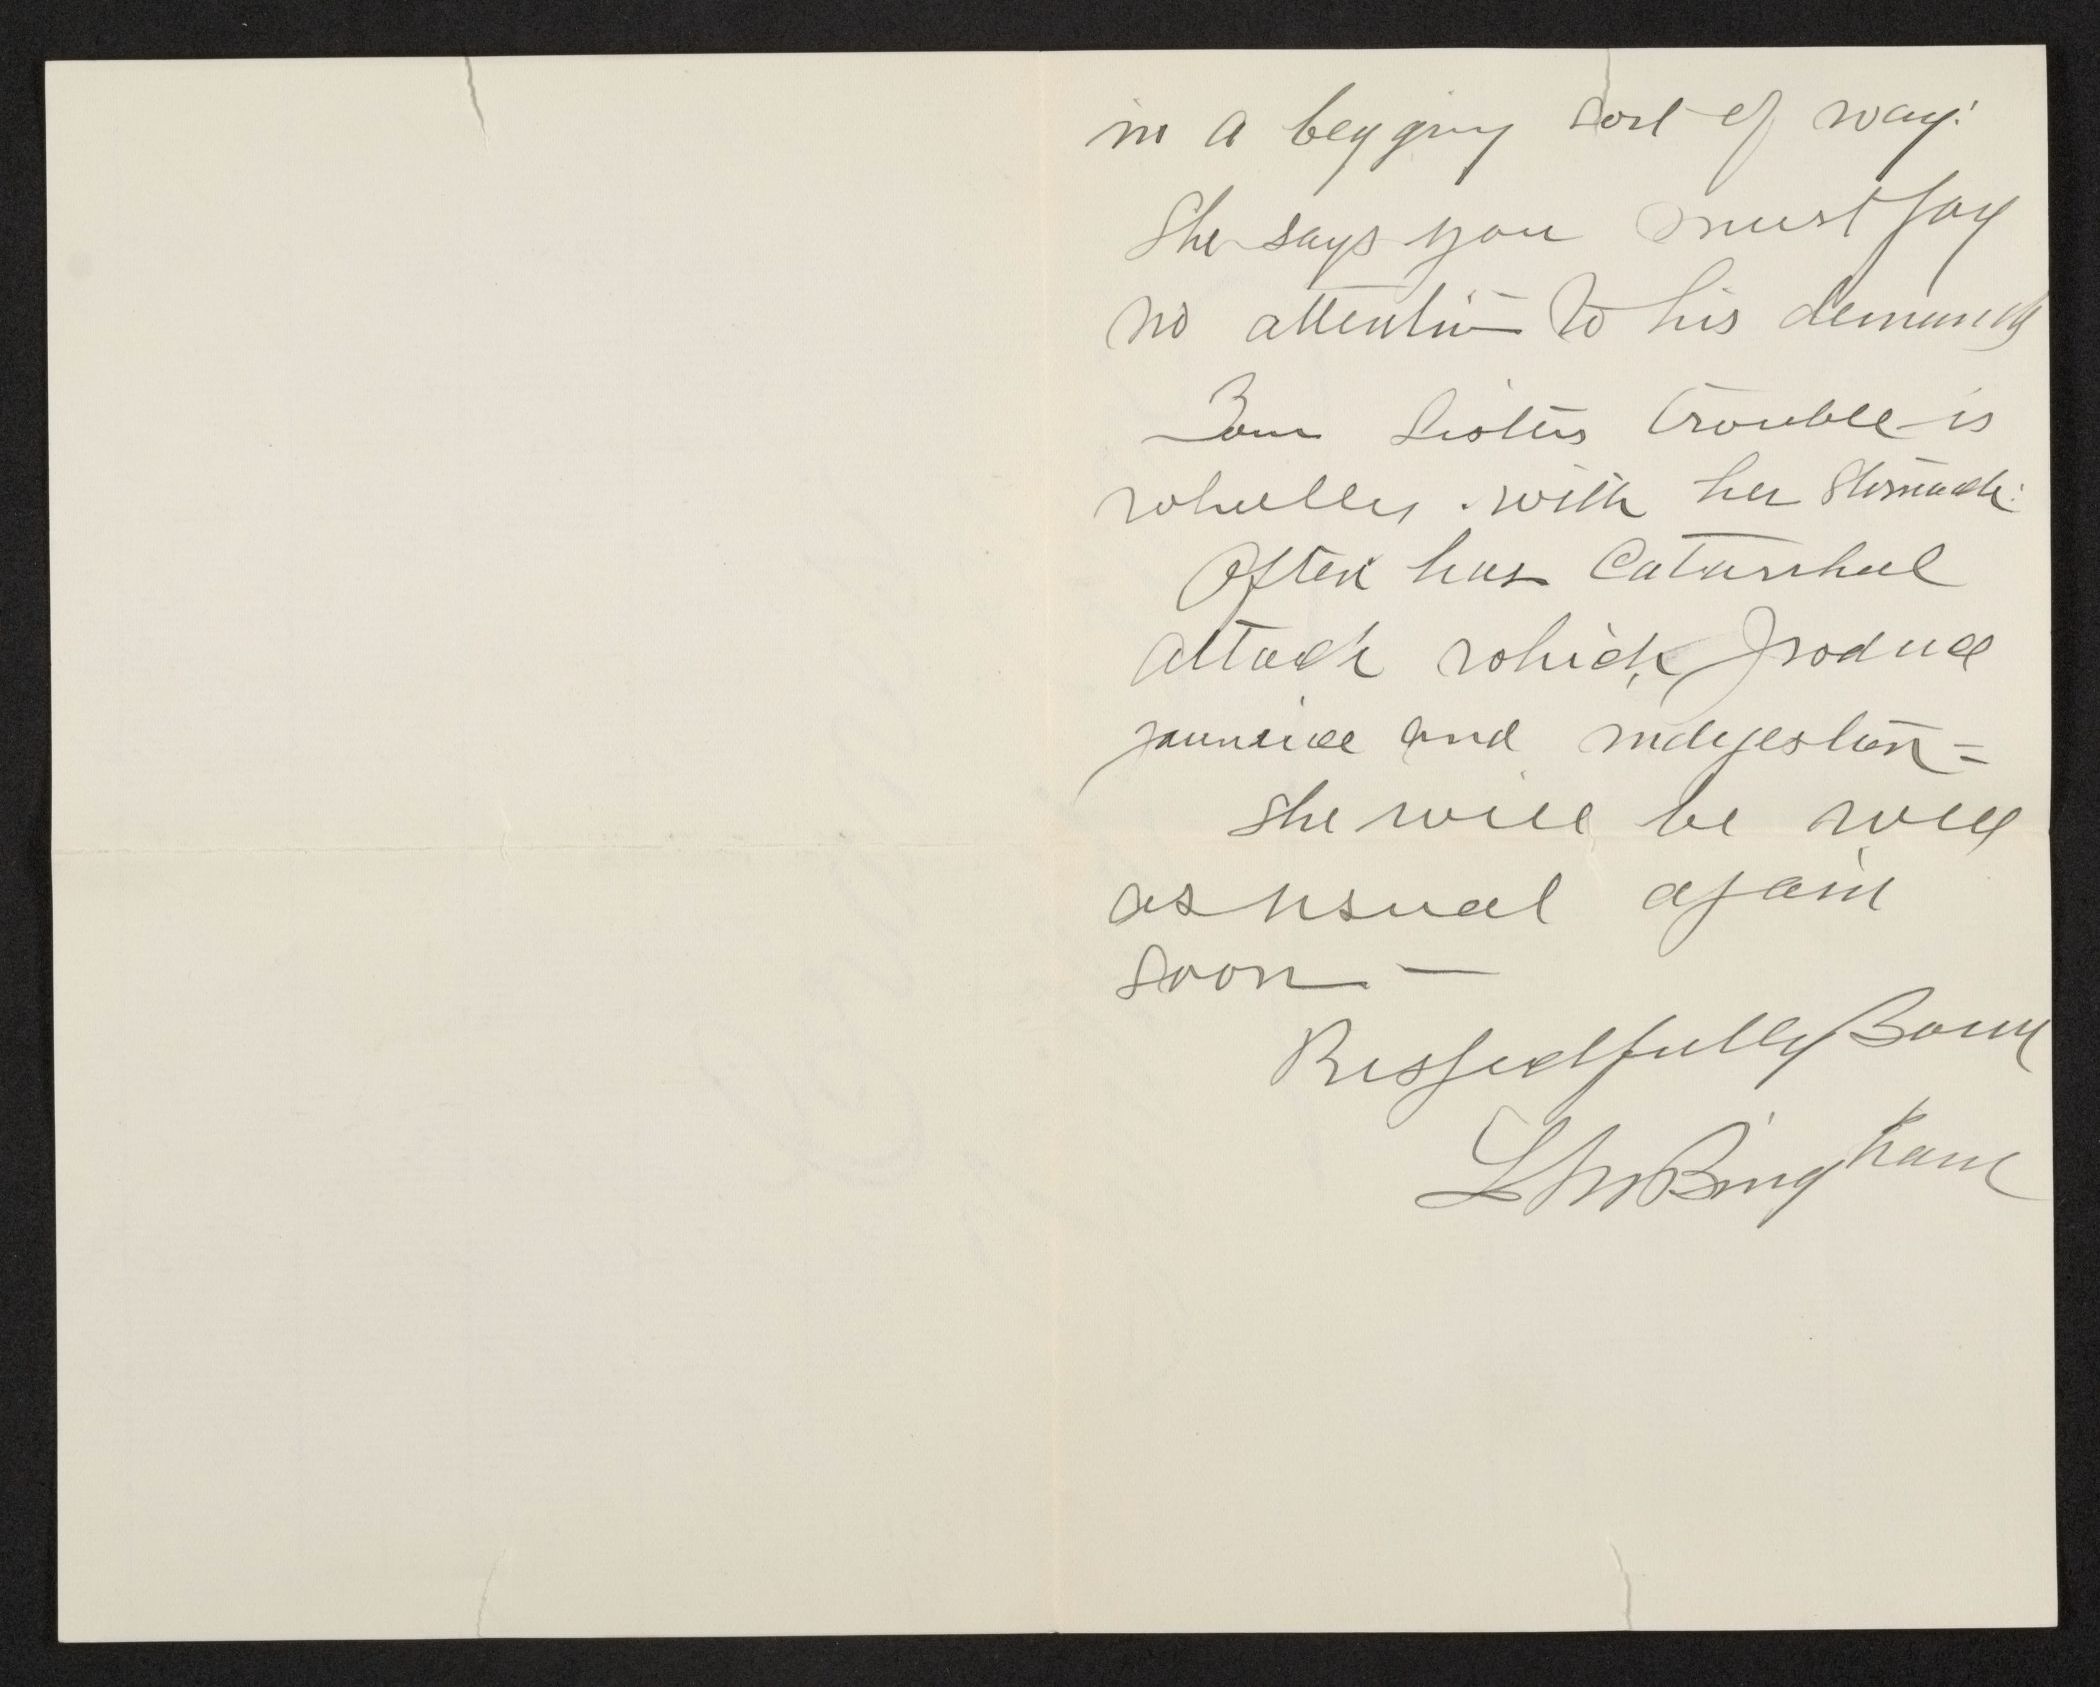 in a begging sort of way:
She says you must pay
no attention to his demands
Your Sisters trouble is
wholly with her Stomach:
Often has Catarrhal
attack which produce
jaundice and indigestion =
She will be well
as usual again
soon —
Respectfully Yours
L M Bingham